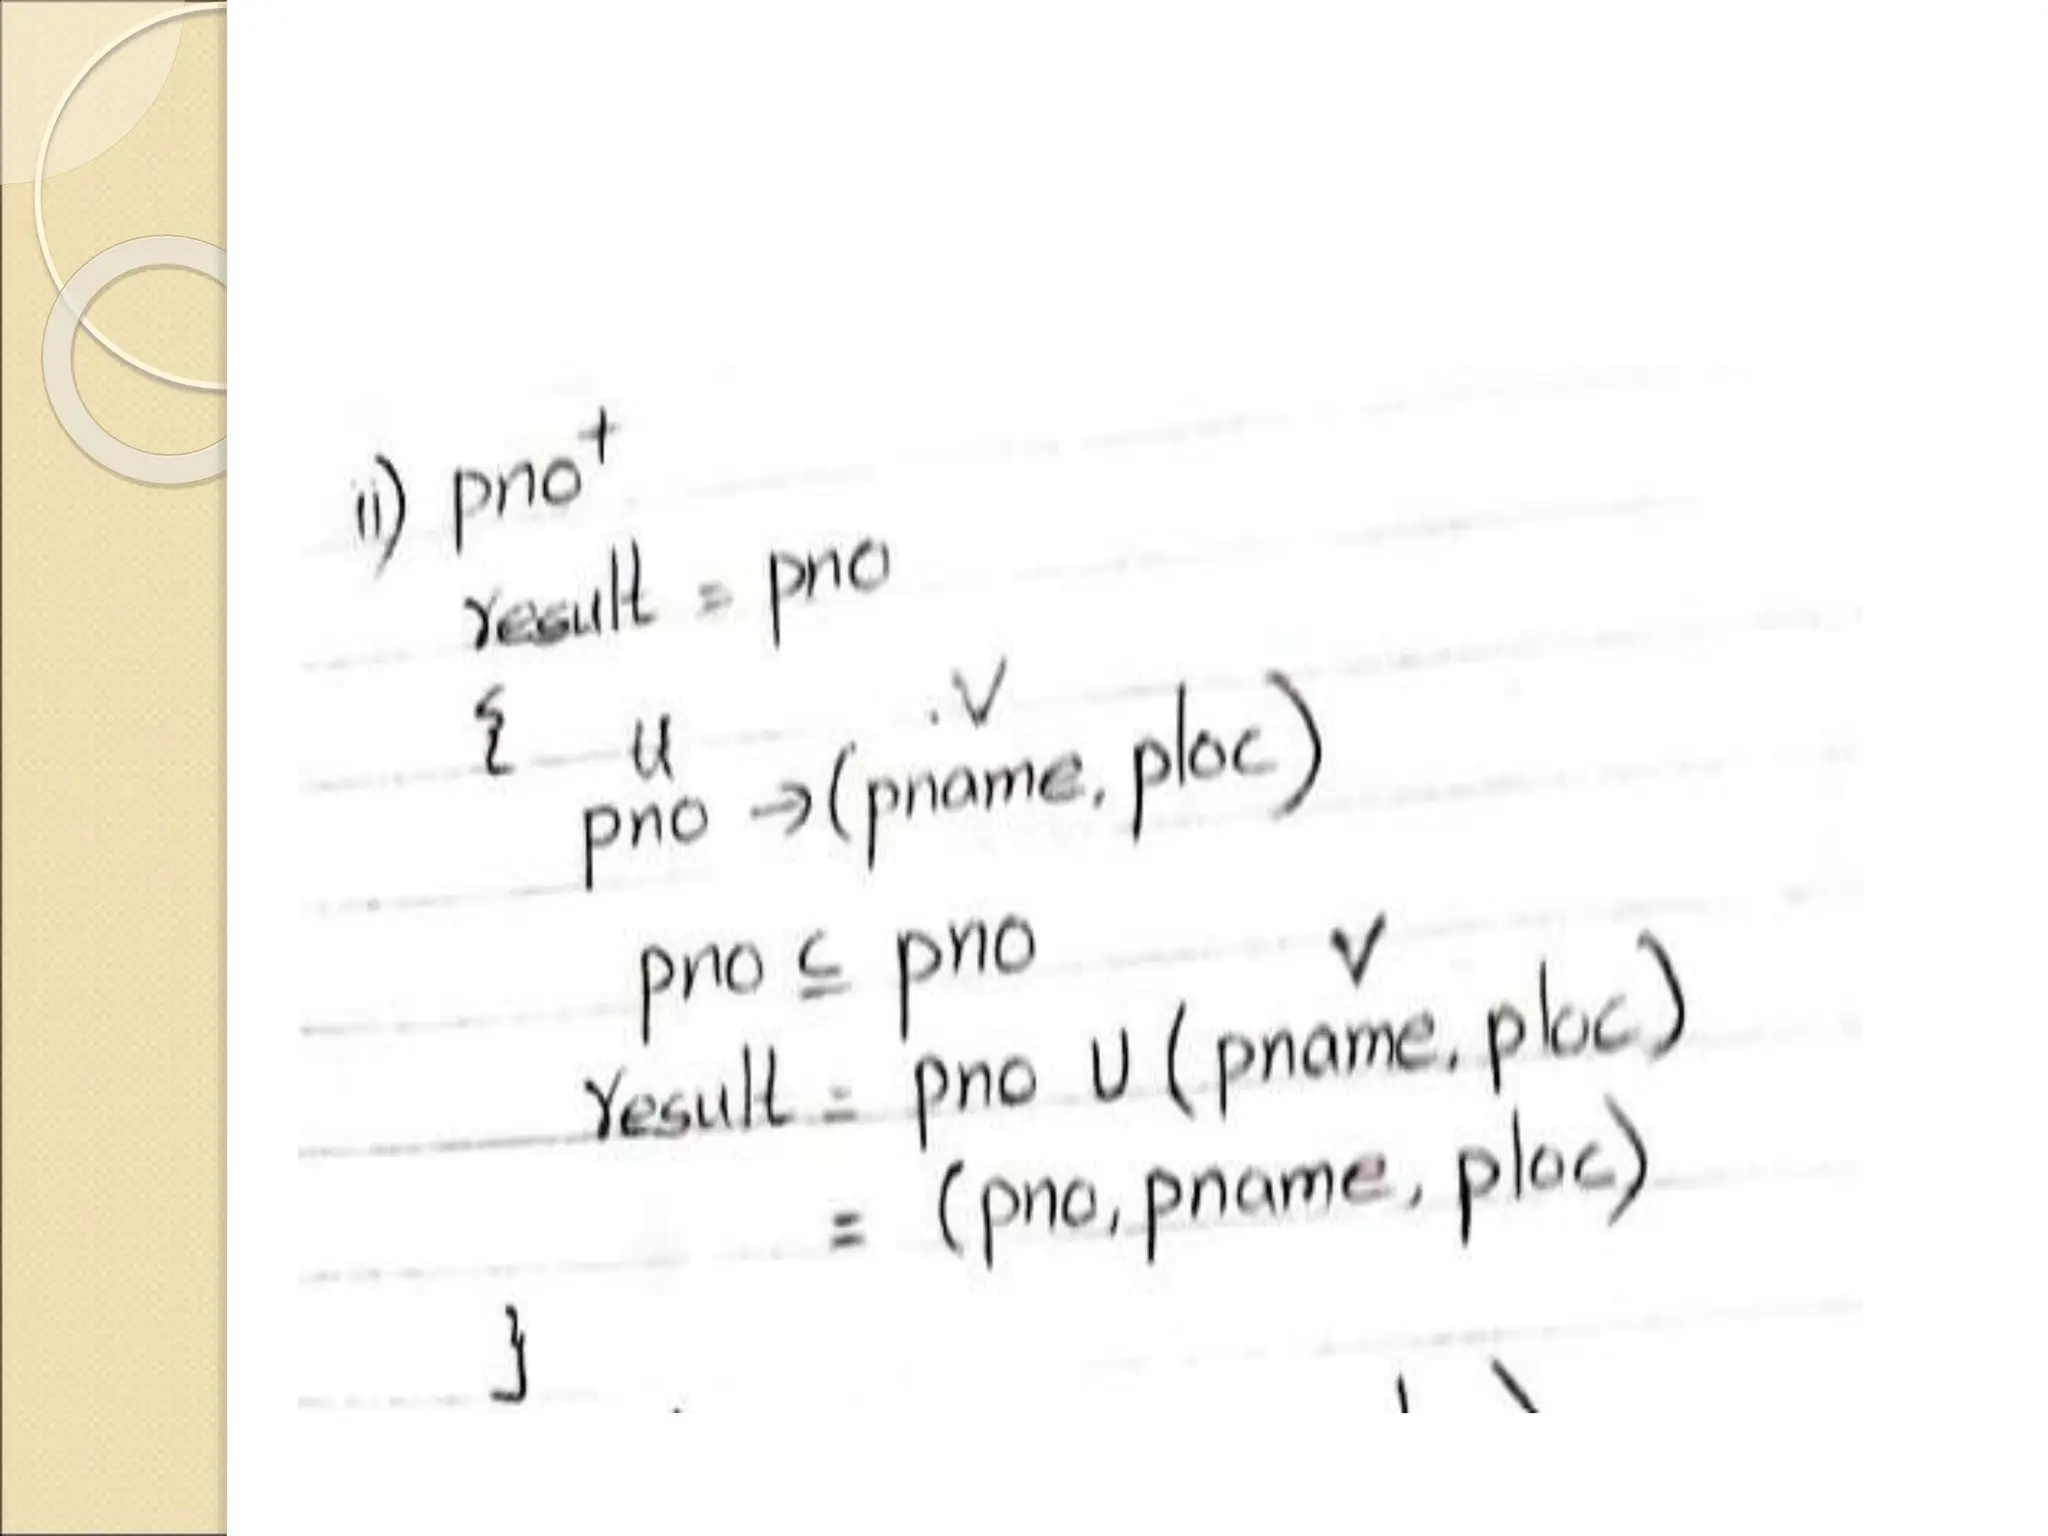 ii) pno⁺
result = pno
{ u v
pno → (pname, ploc)
pno ⊆ pno v
result = pno U (pname, ploc)
= (pno, pname, ploc)
}